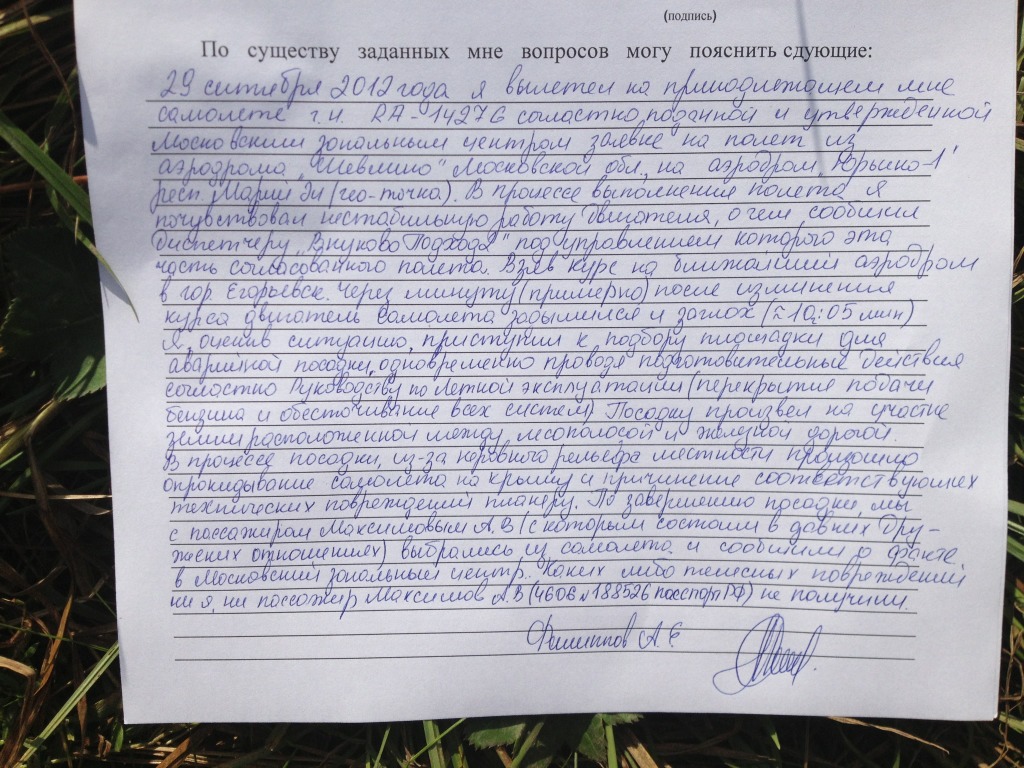 (подпись)
По существу заданных мне вопросов могу пояснить сдующие:
29 сентября 2012 года я вылетел на принадлежащем мне
самолете г.н. RA-1427G согластно поданной и утвержденной
Московским зональным центром заявке на полет из
аэродрома „Шевлино" Московской обл., на аэродром Юрьино-1'
респ. Марий Эл (гео-точка). В процессе выполнения полета я
почувствовал нестабильную работу двигателя, о чем сообщил
диспетчеру „Внуково Подход" под управлением которого эта
часть согласованного полета. Взяв курс на ближайший аэродром
в гор. Егорьевск. Через минуту (примерно) после изминения
курса двигатель самолета задымился и заглох (≈10:05 мин)
Я, оценив ситуацию, приступил к подбору площадки для
аварийной посадки, одновременно проводя подготовительные действия
согластно Руководству по летной эксплуатации (перекрытие подачи
бензина и обесточивание всех систем) Посадку произвел на участке
земли расположенной между лесополосой и железной дорогой.
В процессе посадки, из-за неровного рельефа местности произошло
опрокидывание самолета на крышу и причинение соответствующих
технических повреждений планеру. По завершению посадки, мы
с пассажиром Максимовым А.В (с которым состоим в давних дру-
жеских отношениях) выбрались из самолета и сообщили о факте
в Московский зональный центр. Каких либо телесных повреждений
ни я, ни пассажир Максимов А.В (4606 № 188526 паспорт РФ) не получили.
Филиппов А.Е